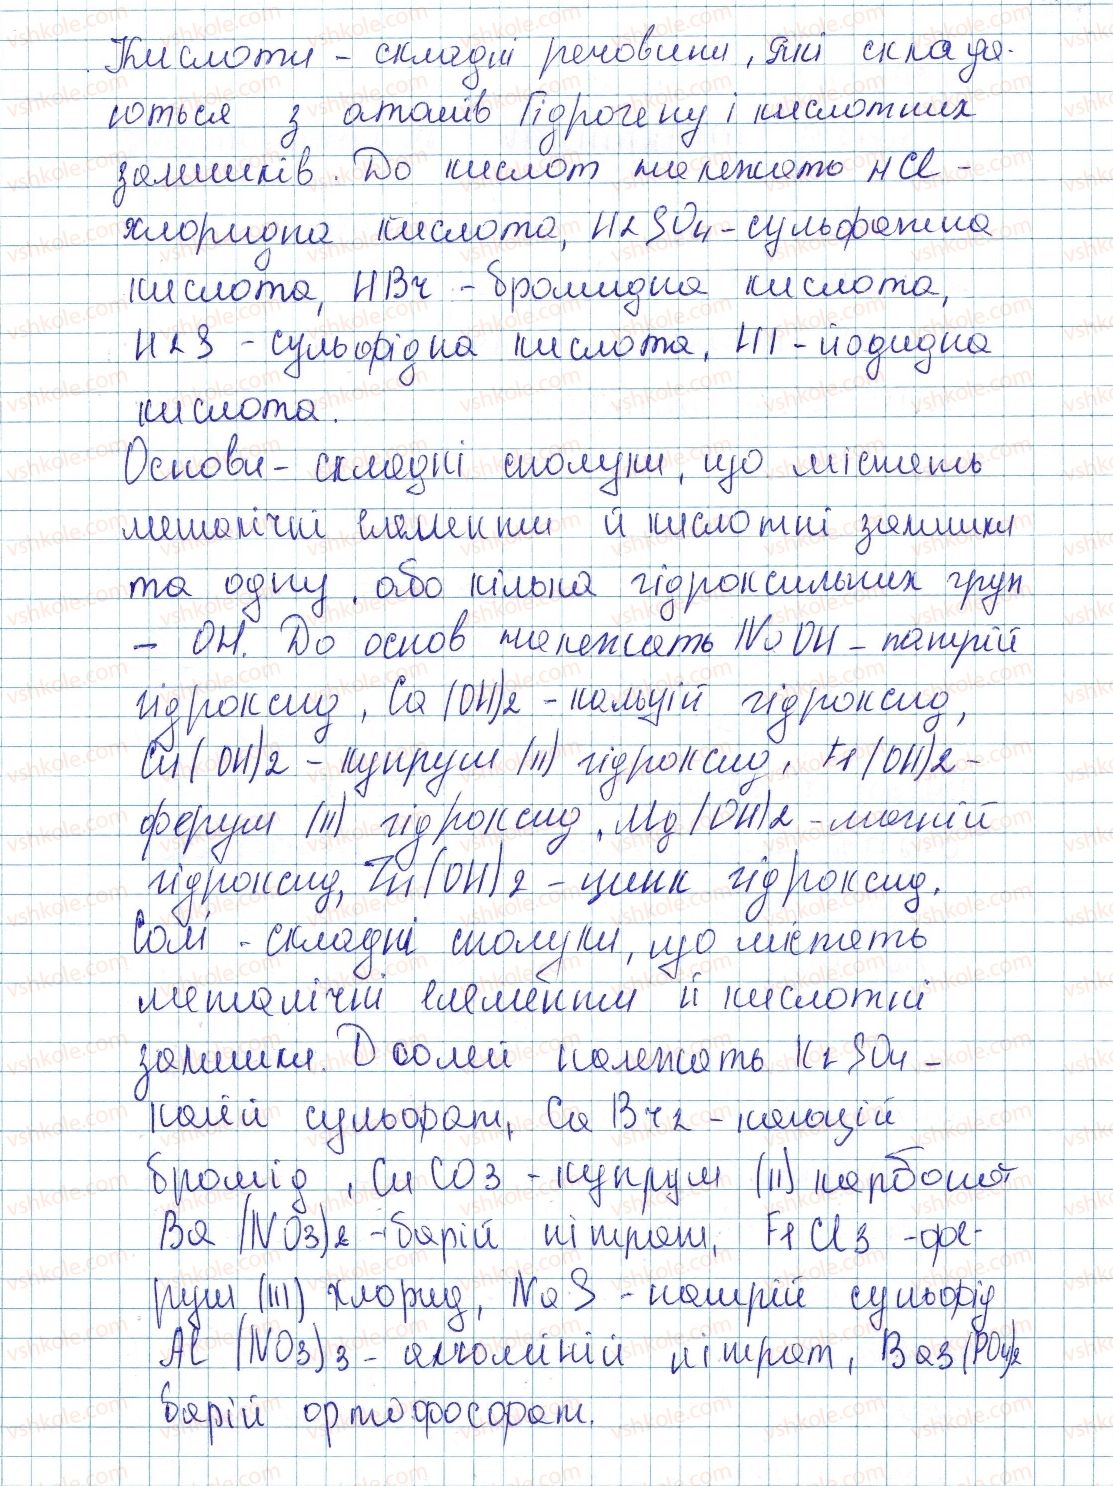 Кислоти – складні речовини, які склада-
ються з атомів Гідрогену і кислотних
залишків. До кислот належать HCl –
хлоридна кислота, H2SO4 – сульфатна
кислота, HBr – бромидна кислота,
H2S – сульфідна кислота, HI – йодидна
кислота.
Основи – складні сполуки, що містять
металічні елементи й кислотні залишки
та одну, або кілька гідроксильних груп
– OH. До основ належать NaOH – натрій
гідроксид, Ca(OH)2 – кальцій гідроксид,
Cu(OH)2 – купрум (II) гідроксид, Fe(OH)2 –
ферум (II) гідроксид, Mg(OH)2 – магній
гідроксид, Zn(OH)2 – цинк гідроксид.
Солі – складні сполуки, що містять
металічні елементи й кислотні
залишки. До солей належать K2SO4 –
калій сульфат, CaBr2 – кальцій
бромід, CuCO3 – купрум (II) карбонат
Ba(NO3)2 – барій нітрат, FeCl3 – фе-
рум (III) хлорид, NaS – натрій сульфід
Al(NO3)3 – алюміній нітрат, Ba3(PO4)2
барій ортофосфат.